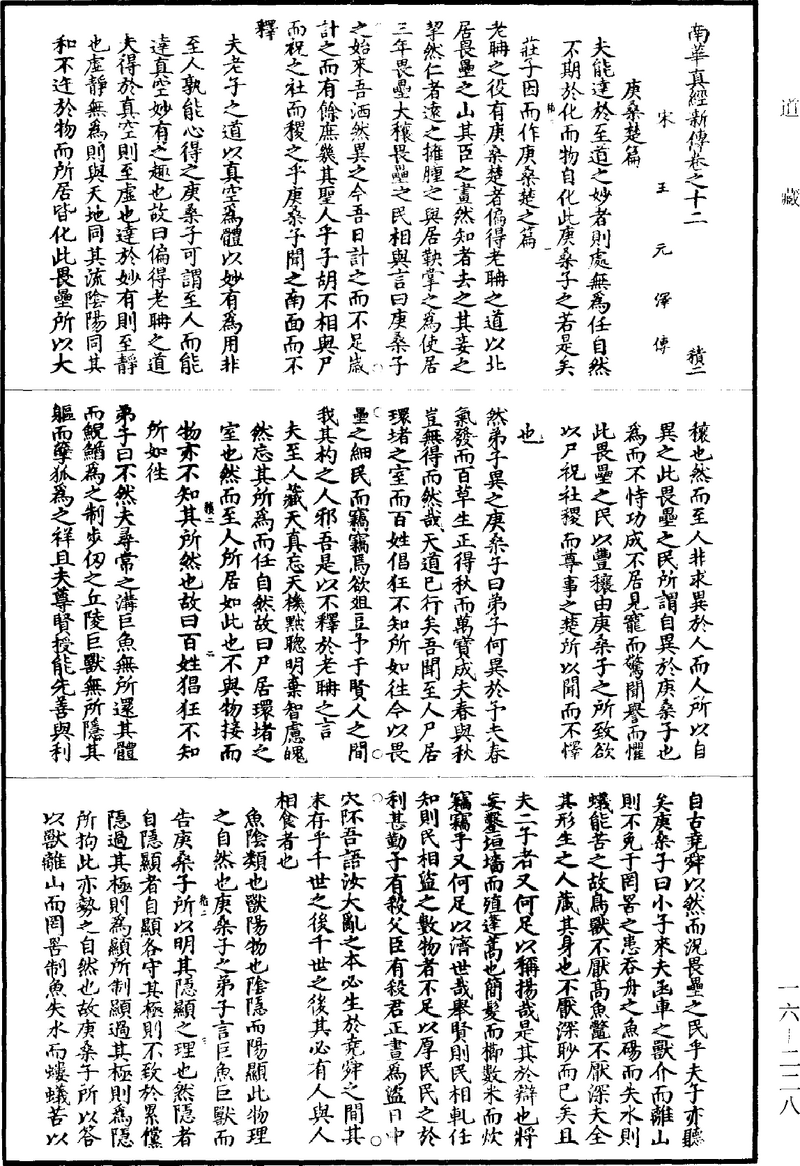 道藏
南華真經新傳卷之十二
積二
宋王元澤傳
庚桑楚篇
夫能達於至道之妙者則處無為任自然
不期於化而物自化此庚桑子之若是矣
莊子因而作庚桑楚之篇
老聃之役有庚桑楚者偏得老聃之道以北
居畏壘之山其臣之畫然知者去之其妾之
挈然仁者遠之擁腫之與居鞅掌之為使居
三年畏壘大穰畏壘之民相與言曰庚桑子
之始來吾洒然異之今吾日計之而不足歲
計之而有餘庶幾其聖人乎子胡不相與尸
而祝之社而稷之乎庚桑子聞之南面而不
釋
夫老子之道以真空為體以妙有為用非
至人孰能心得之庚桑子可謂至人而能
達真空妙有之趣也故曰偏得老聃之道
夫得於真空則至虛也達於妙有則至靜
也虛靜無為則與天地同其流陰陽同其
和不迕於物而所居皆化此畏壘所以大
穰也然而至人非求異於人而人所以自
異之此畏壘之民所謂自異於庚桑子也
為而不恃功成不居見寵而驚聞譽而懼
此畏壘之民以豐穰由庚桑子之所致欲
以尸祝社稷而尊事之楚所以聞而不懌
也
然弟子異之庚桑子曰弟子何異於予夫春
氣發而百草生正得秋而萬寶成夫春與秋
豈無得而然哉天道已行矣吾聞至人尸居
環堵之室而百姓倡狂不知所如往今以畏
壘之細民而竊竊焉欲俎豆予于賢人之間
我其杓之人邪吾是以不釋於老聃之言
夫至人藏天真忘天機黜聰明棄智慮愧
然忘其所為而任自然故曰尸居環堵之
室也然而至人所居如此也不與物接而
物亦不知其所然也故曰百姓猖狂不知
所如往
弟子曰不然夫尋常之溝巨魚無所還其體
而鯢鰌為之制步仞之丘陵巨獸無所隱其
軀而㜸狐為之祥且夫尊賢授能先善與利
自古堯舜以然而況畏壘之民乎夫子亦聽
矣庚桑子曰小子來夫函車之獸介而離山
則不免于罔罟之患吞舟之魚碭而失水則
蟻能苦之故鳥獸不厭高魚鼈不厭深夫全
其形生之人藏其身也不厭深眇而已矣且
夫二子者又何足以稱揚哉是其於辯也將
妄鑿垣墻而殖蓬蒿也簡髮而櫛數米而炊
竊竊乎又何足以濟世哉舉賢則民相軋任
知則民相盜之數物者不足以厚民民之於
利甚勤子有殺父臣有殺君正晝為盜日中
穴阫吾語汝大亂之本必生於堯舜之間其
末存乎千世之後千世之後其必有人與人
相食者也
魚陰類也獸陽物也陰隱而陽顯此物理
之自然也庚桑子之弟子言巨魚巨獸而
告庚桑子所以明其隱顯之理也然隱者
自隱顯者自顯各守其極則不致於累儻
隱過其極則為顯所制顯過其極則為隱
所拘此亦勢之自然也故庚桑子所以答
以獸離山而罔罟制魚失水而螻蟻苦以
一六—二二八